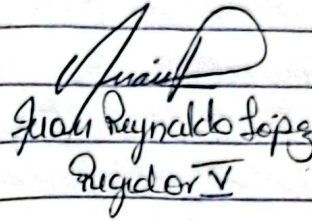 Juan Reynaldo López
Regidor V